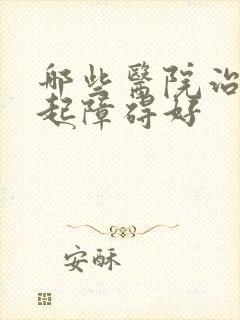 哪些醫院治
起障碍好
安酥